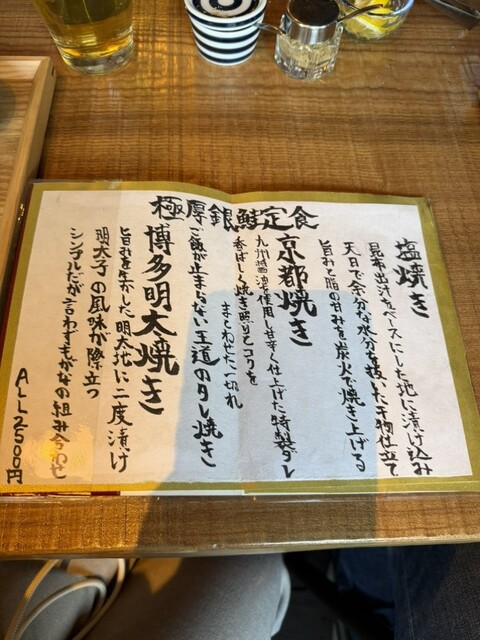 極厚銀鮭定食
塩焼き
昆布出汁をベースにした地に漬け込み
天日で余分な水分を抜いた干物仕立て
旨みと脂の甘みを炭火で焼き上げる
京都焼き
九州醤油を使用し甘辛く仕上げた特製ダレ
香ばしく焼き照りとコクを
まとわせた一切れ
ご飯が止まらない王道のタレ焼き
博多明太焼き
旨みを生かした明太地に二度漬け
明太子の風味が際立つ
シンプルだが言わずもがなの組み合わせ
ALL2500円